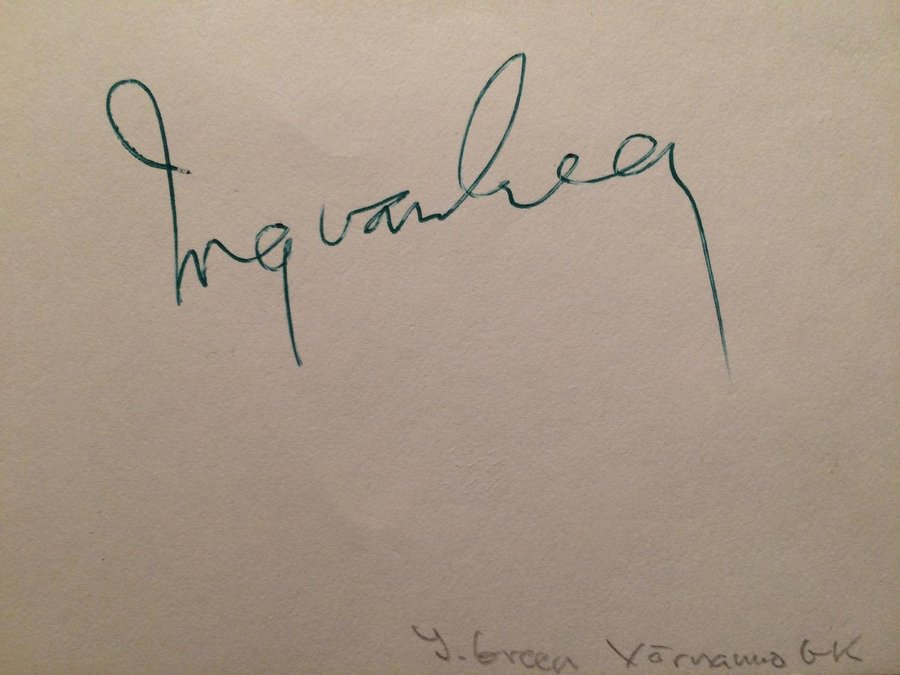 Ingvar
Y. Green Värnamo GK